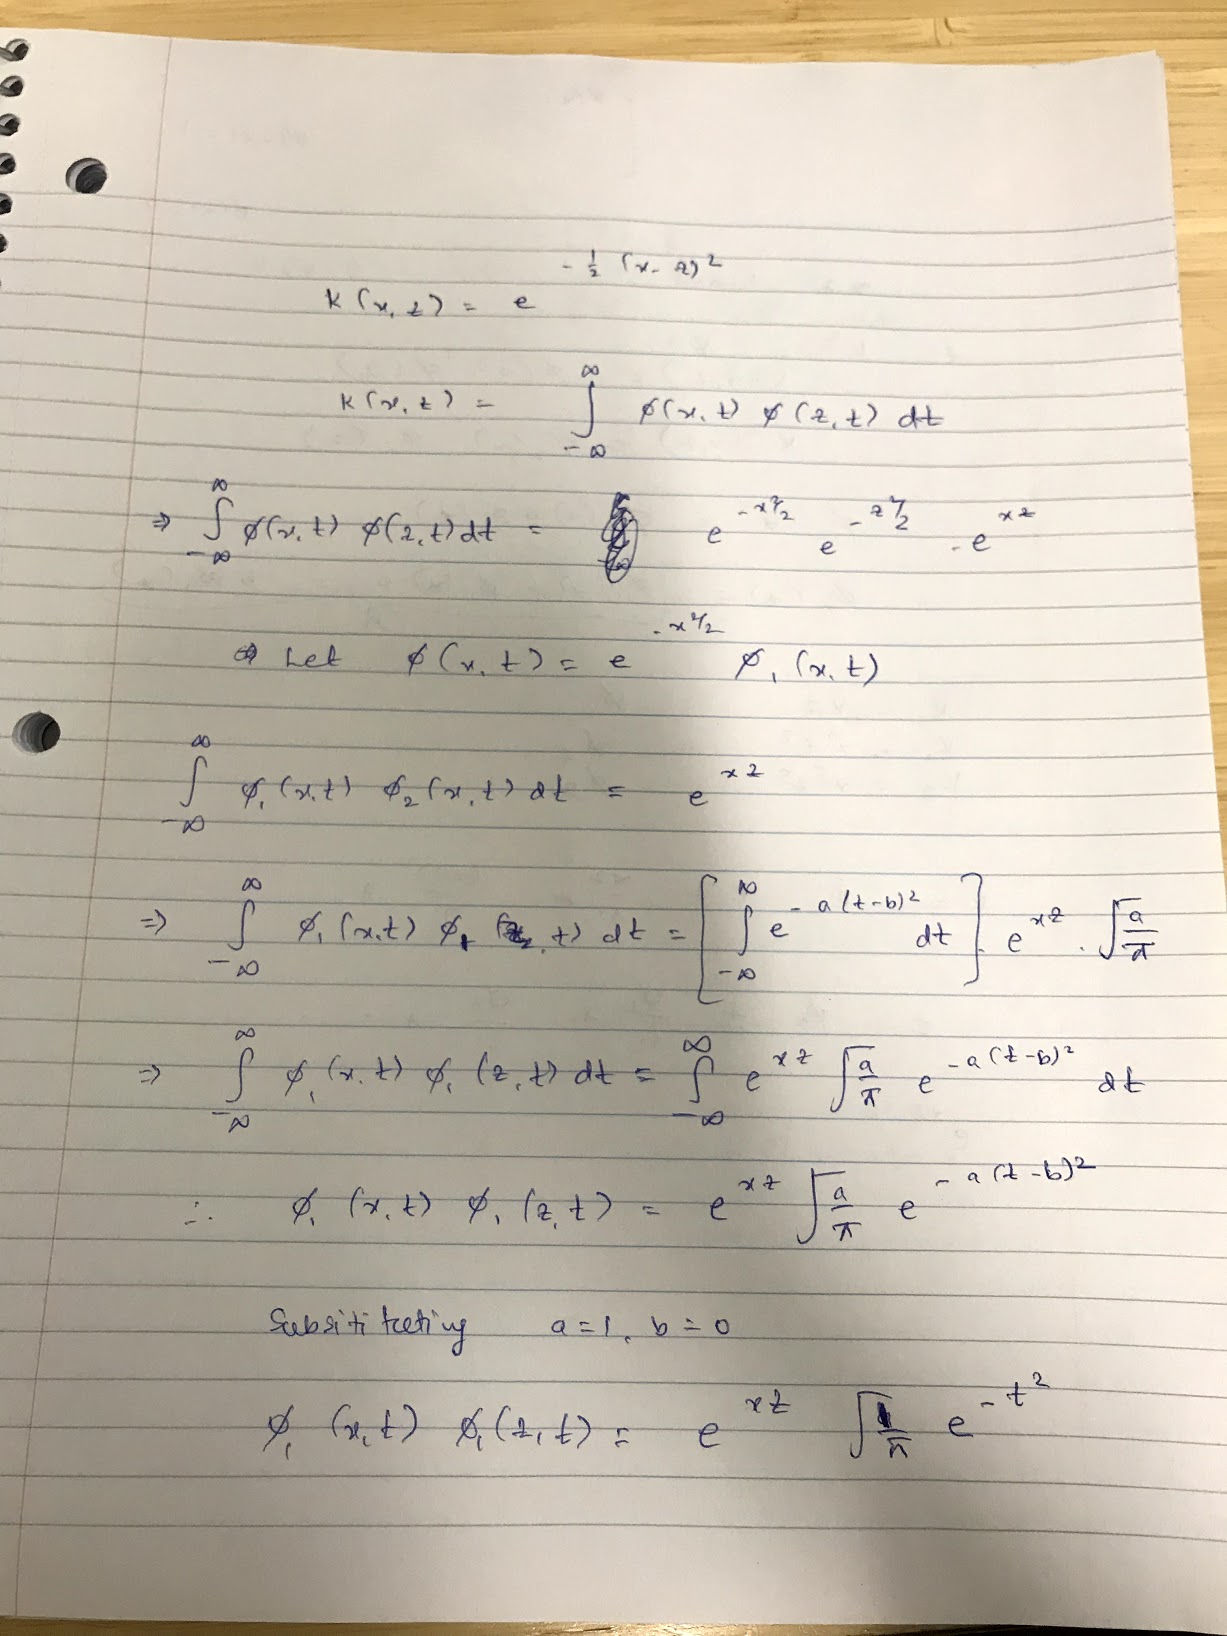 K(x, z) = e^{-\frac{1}{2}(x-z)^2}
K(x, z) = \int_{-\infty}^{\infty} \phi(x, t) \phi(z, t) dt
\Rightarrow \int_{-\infty}^{\infty} \phi(x, t) \phi(z, t) dt = e^{-x^2/2} e^{-z^2/2} \cdot e^{xz}
Let \phi(x, t) = e^{-x^2/2} \phi_1(x, t)
\int_{-\infty}^{\infty} \phi_1(x, t) \phi_2(x, t) dt = e^{xz}
\Rightarrow \int_{-\infty}^{\infty} \phi_1(x, t) \phi_1(z, t) dt = \left[ \int_{-\infty}^{\infty} e^{-a(t-b)^2} dt \right] \cdot e^{xz} \cdot \sqrt{\frac{a}{\pi}}
\Rightarrow \int_{-\infty}^{\infty} \phi_1(x, t) \phi_1(z, t) dt = \int_{-\infty}^{\infty} e^{xz} \sqrt{\frac{a}{\pi}} e^{-a(t-b)^2} dt
\therefore \phi_1(x, t) \phi_1(z, t) = e^{xz} \sqrt{\frac{a}{\pi}} e^{-a(t-b)^2}
Subsitituting a = 1, b = 0
\phi_1(x, t) \phi_1(z, t) = e^{xz} \sqrt{\frac{1}{\pi}} e^{-t^2}